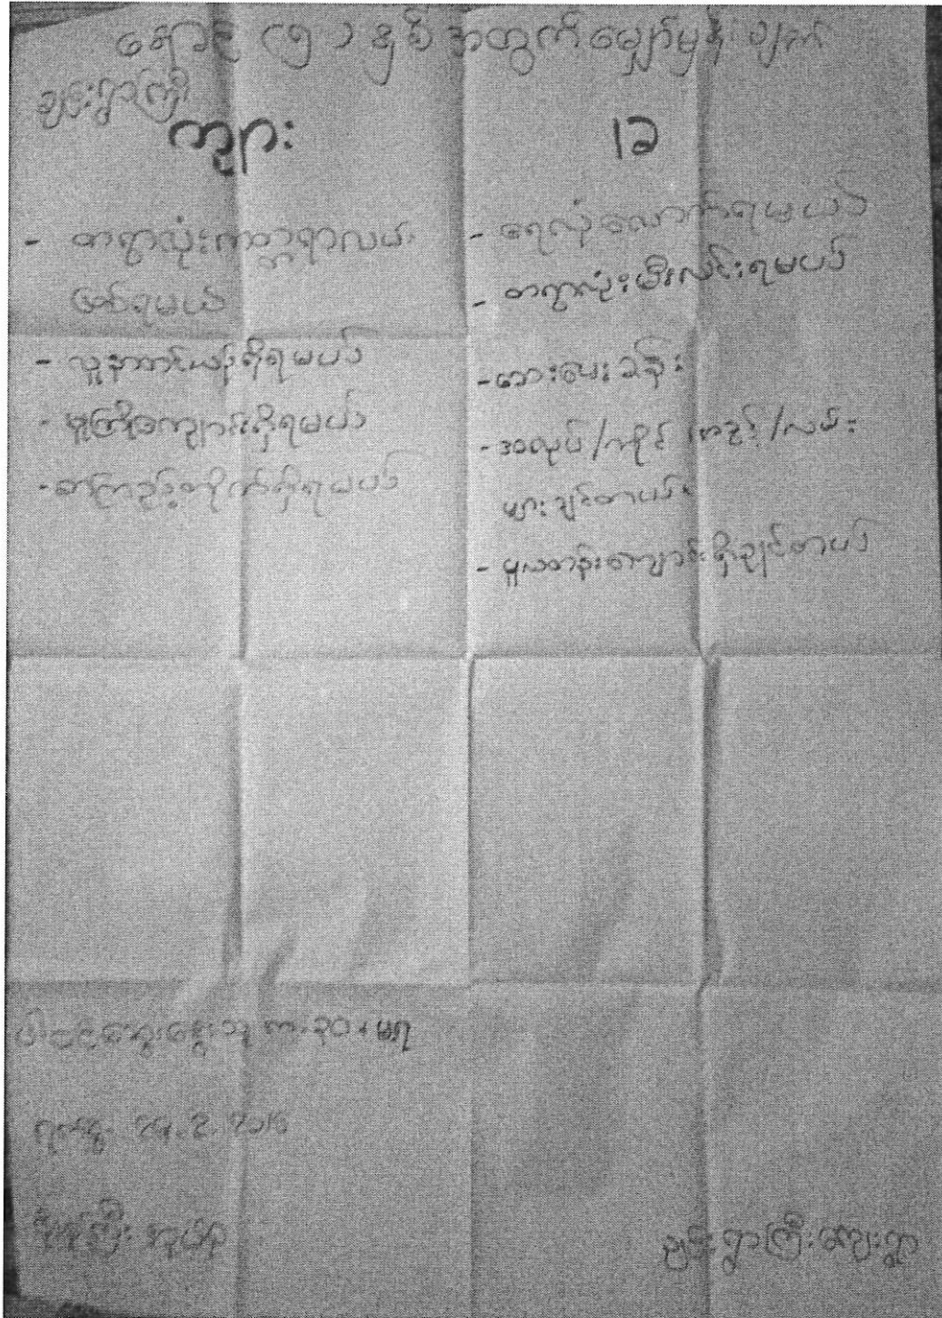 နောင် (၅) နှစ် အတွက် မျှော်မှန်းချက်
ချင်းရွာကြီး
ကျား
မ
- တရွာလုံးကတ္တရာလမ်း
ဖြစ်ရမယ်
- လူနာတင်ယာဉ်ရှိရမယ်
- မူကြိုကျောင်းရှိရမယ်
- စာကြည့်တိုက်ရှိရမယ်
- ရေလုံလောက်ရမယ်
- တရွာလုံးမီးလင်းရမယ်
- ဆေးပေးခန်း
- အလုပ်/ အခွင့်/လမ်း
များချင်တယ်
- မူလတန်းကျောင်းရှိချင်တယ်
ပါဝင်ဆွေးနွေးသူ ကျား ၃၀ + မ၅
ရက်စွဲ
အုပ်စု
ချင်းရွာကြီးကျေးရွာ